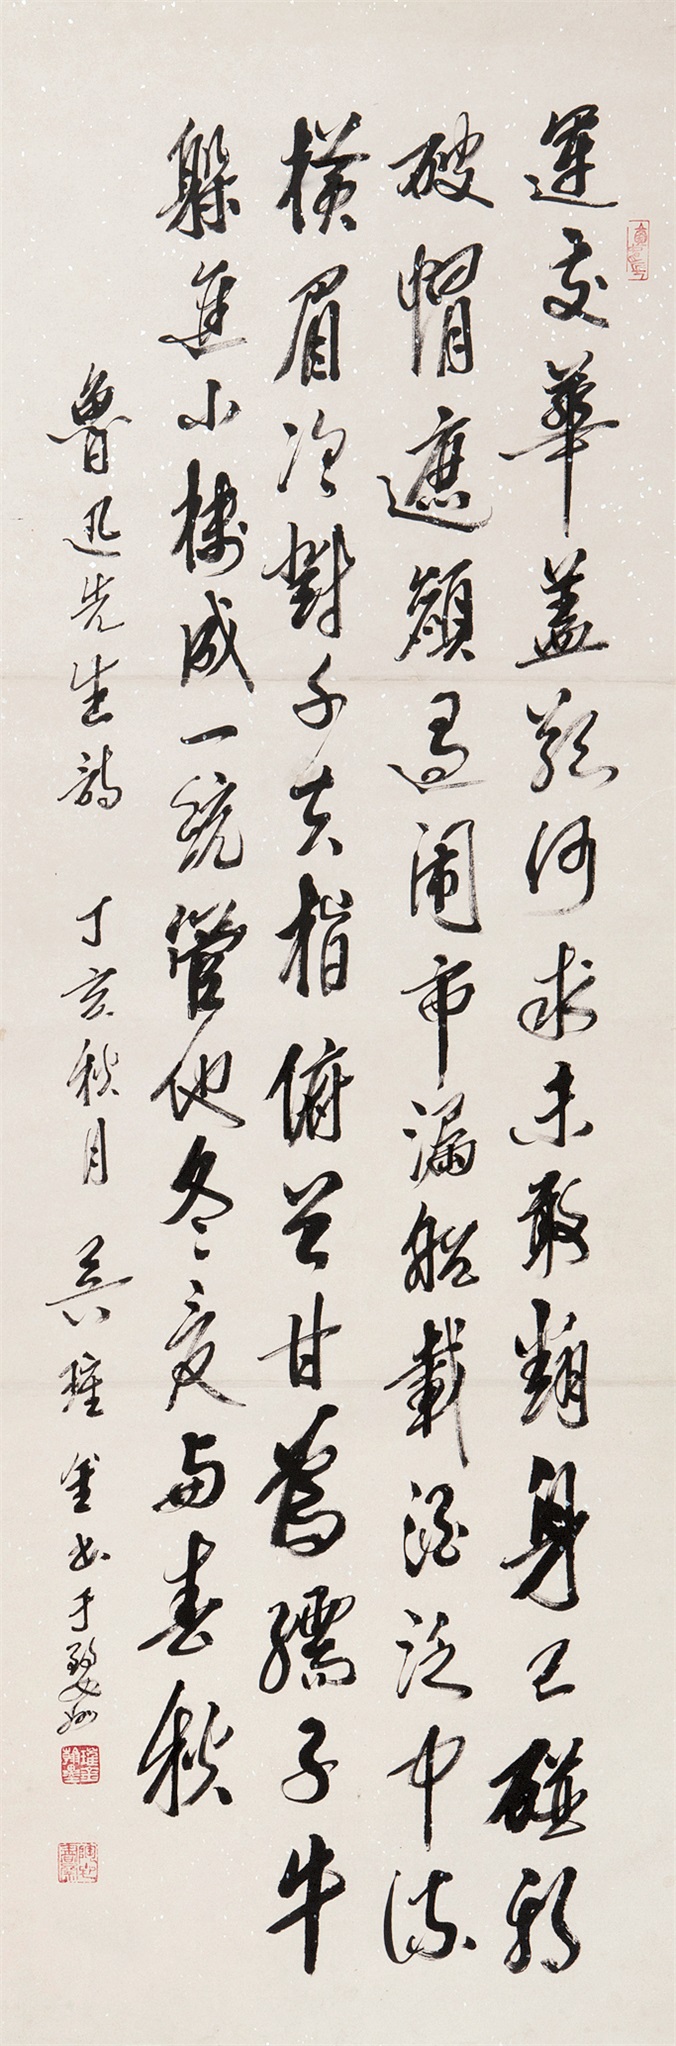 運交華蓋欲何求未敢翻身已碰頭
破帽遮顏過闹市漏船載酒泛中流
橫眉冷對千夫指俯首甘為孺子牛
躲進小樓成一統管他冬夏與春秋
魯迅先生詩 丁亥秋月 吳 金書于婺州